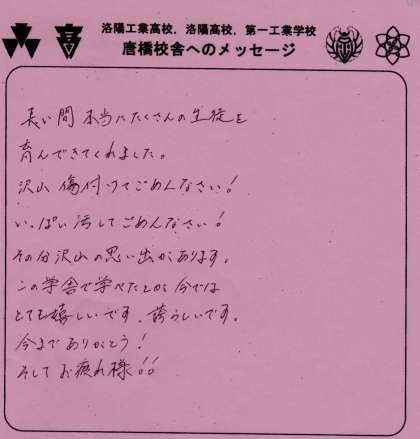 洛陽工業高校，洛陽高校，第一工業学校
唐橋校舎へのメッセージ
高
長い間 本当にたくさんの生徒を
育んできてくれました。
沢山 傷付けてごめんなさい！
いっぱい汚してごめんなさい！
その分沢山の思い出があります。
この学舎で学べたことが今では
とても嬉しいです、誇らしいです。
今までありがとう！
そしてお疲れ様!!